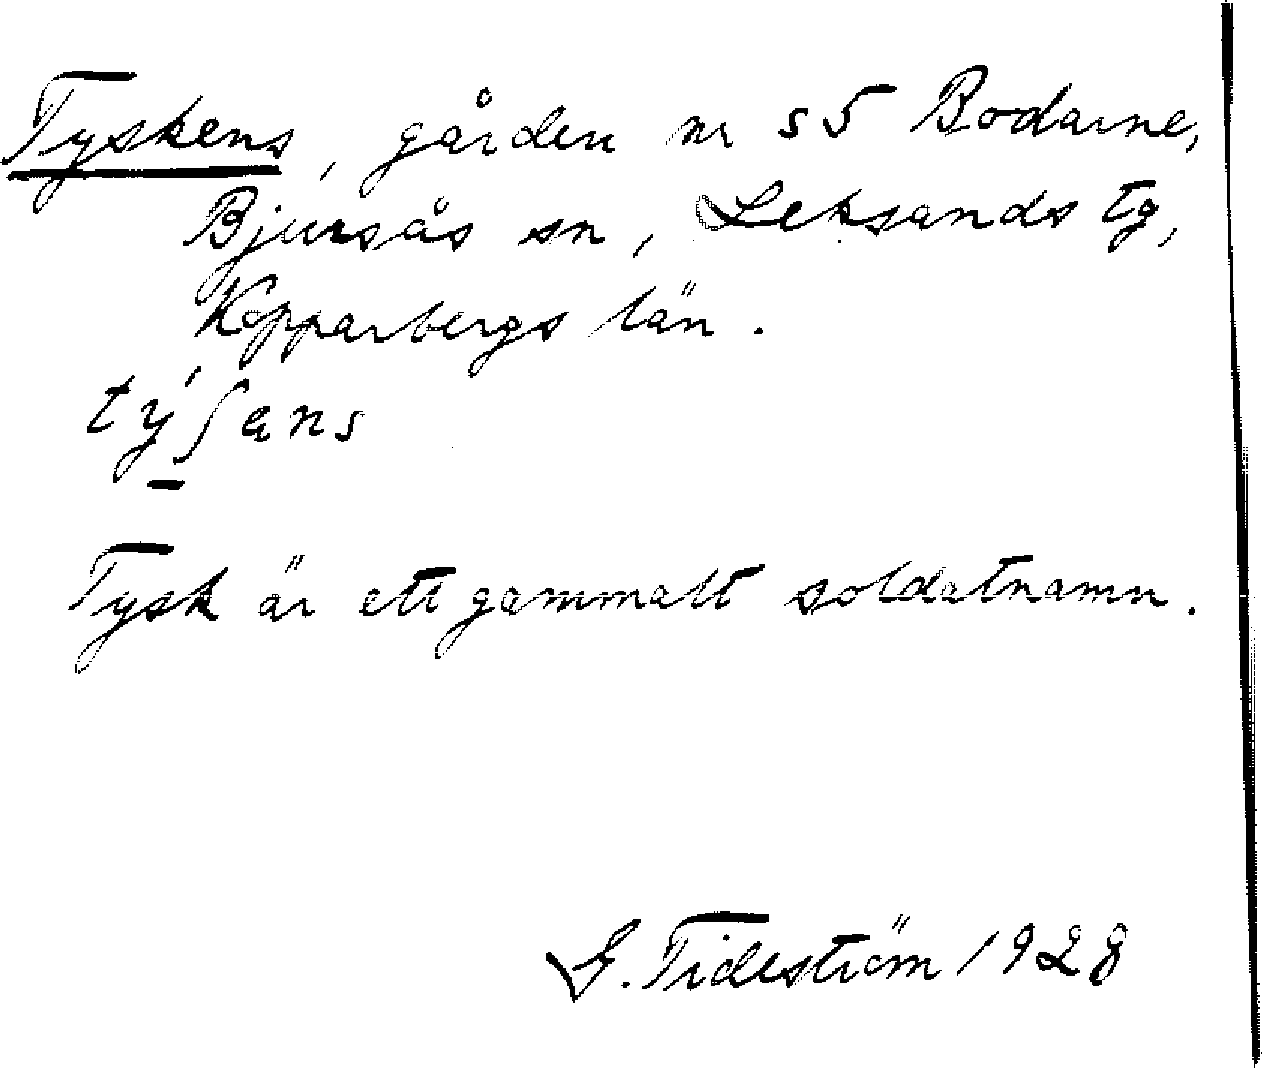 Tyskens, gården nr 55 Bodarne,
Bjursås sn, Leksands tg,
Kopparbergs län.
tý∫ans
Tysk är ett gammalt soldatnamn.
G. Tideström 1928